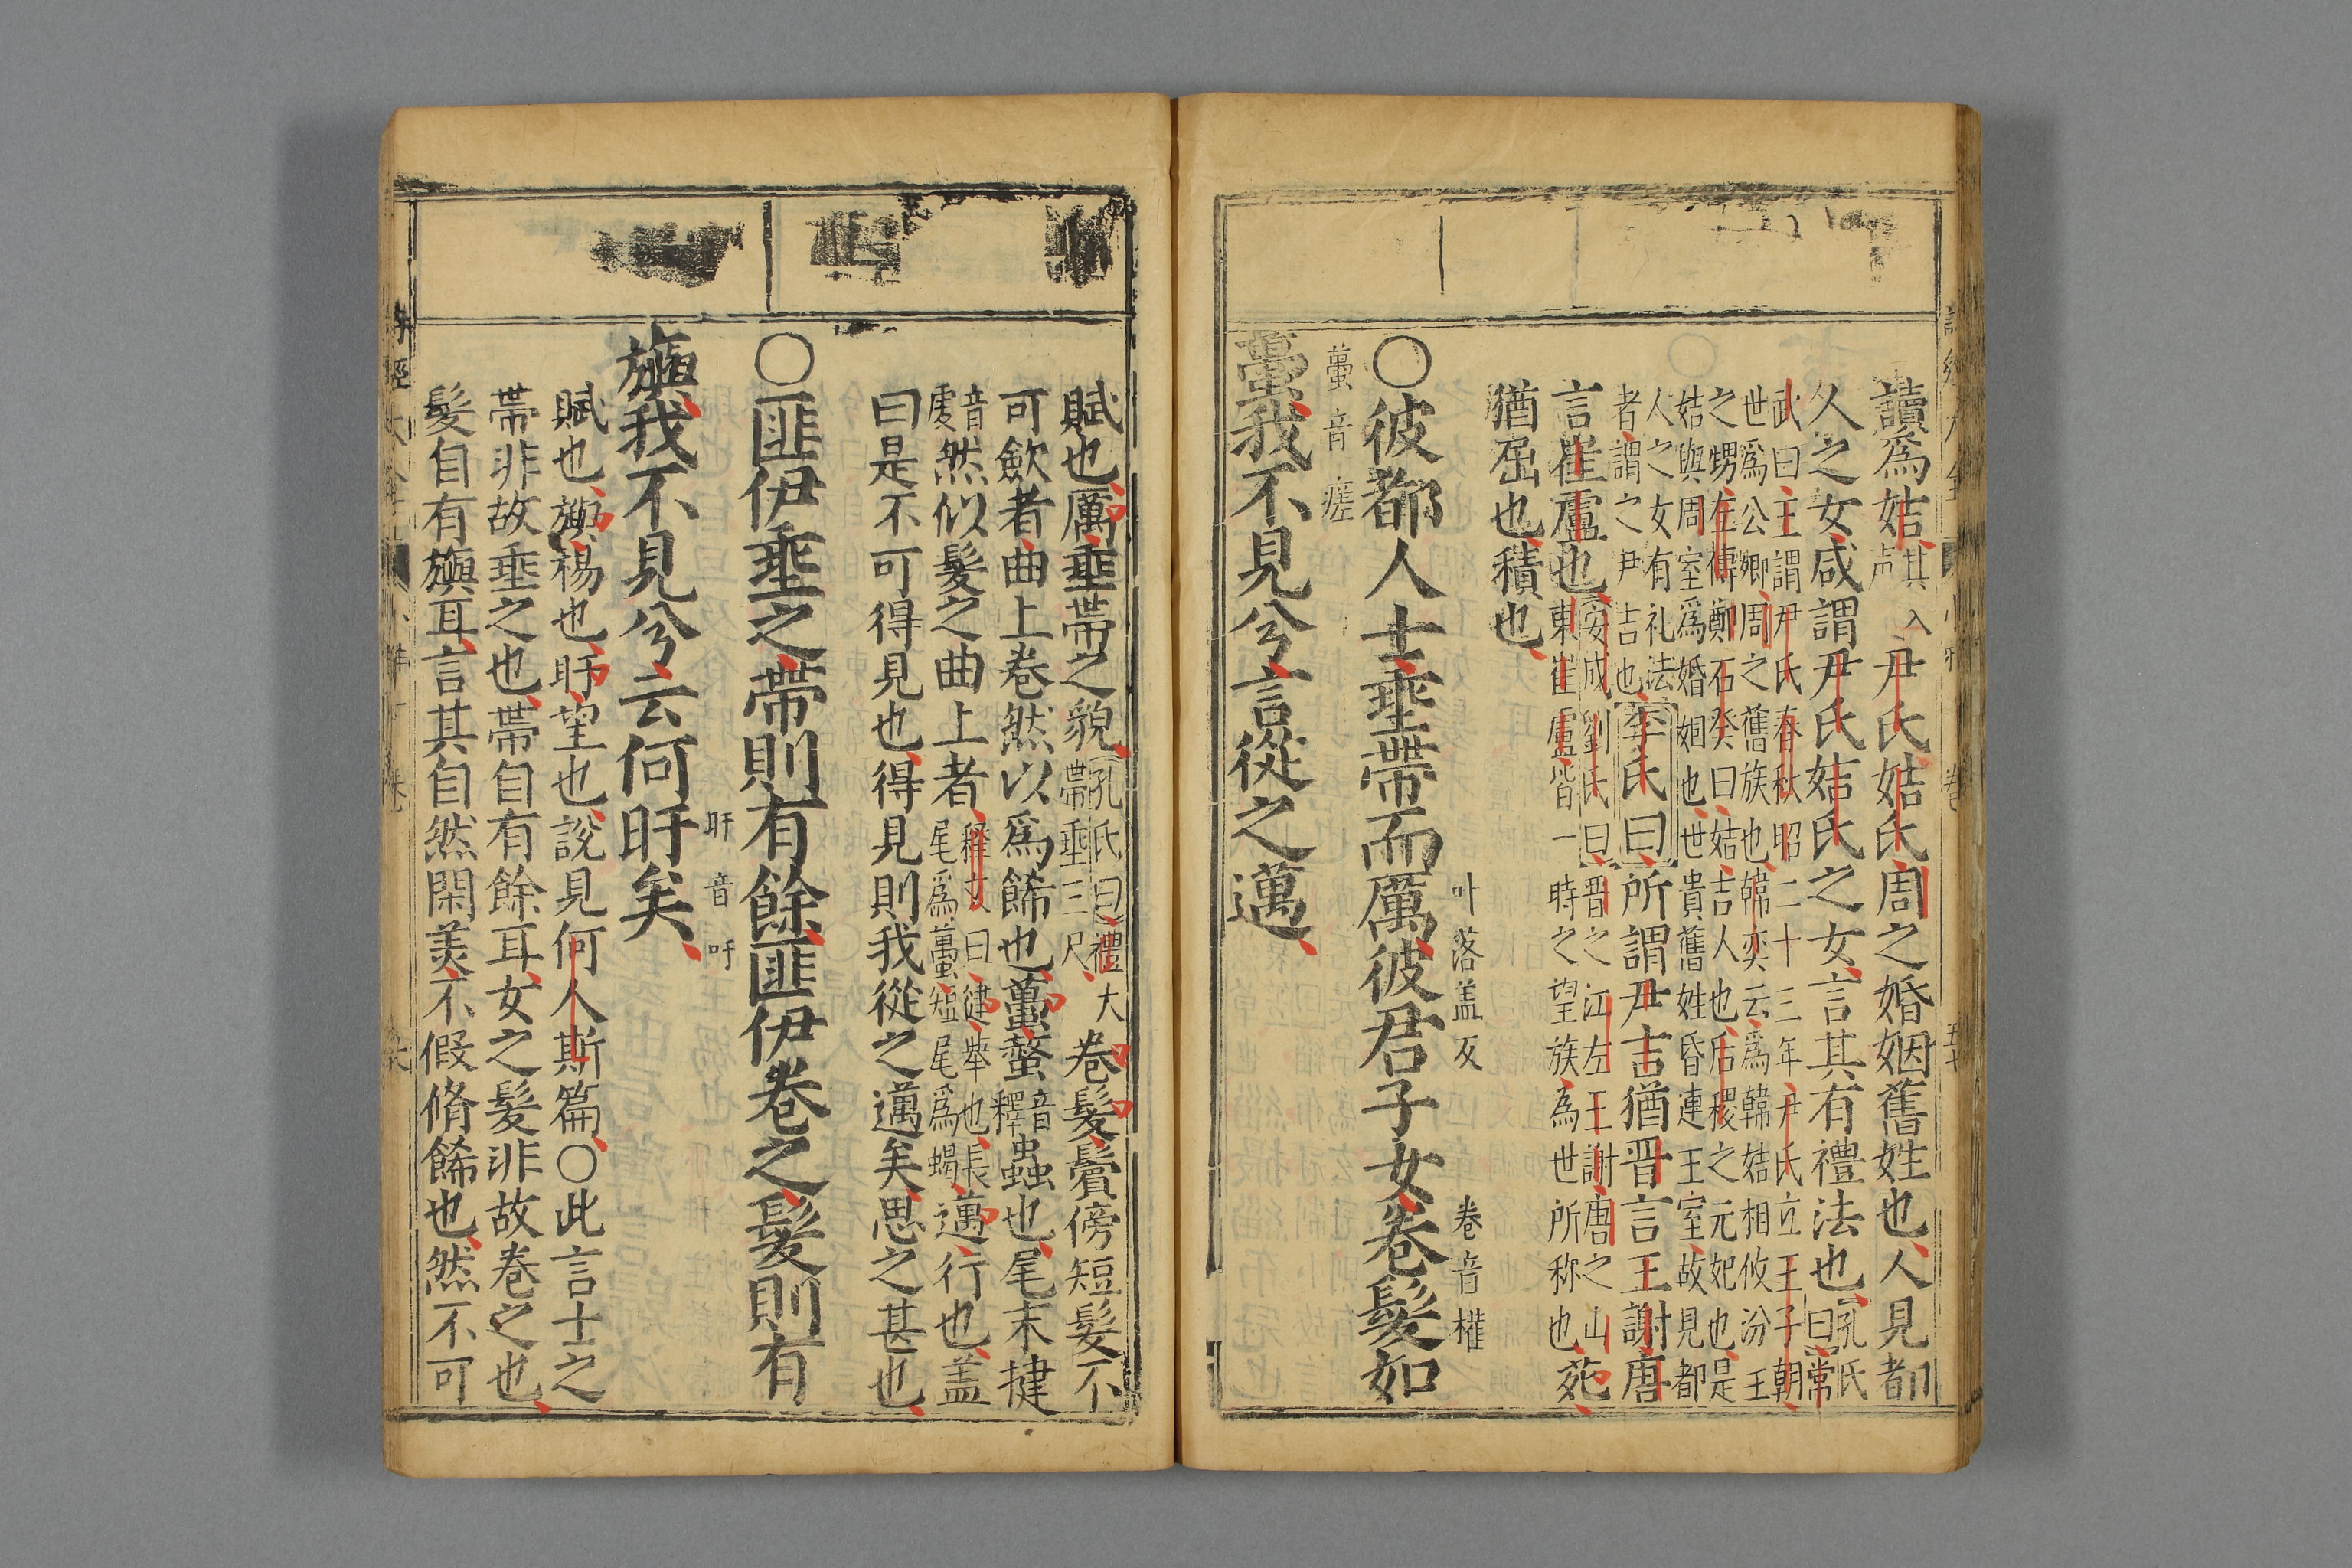 讀為姞其入声尹氏姞氏周之婚姻舊姓也人見都
人之女咸謂尹氏姞氏之女言其有禮法也孔氏曰常
武曰王謂尹氏春秋昭二十三年尹氏立王子朝
世為公卿周之舊族也韓奕云為韓姞相攸汾王
之甥左傳鄭石癸曰姞吉人也后稷之元妃也是
姞與周室為婚姻也世貴舊姓昏連王室故見都
人之女有礼法
者謂之尹吉也李氏曰所謂尹吉猶晋言王謝唐
言崔盧也安成劉氏曰晋之江左王謝唐之山
東崔盧皆一時之望族為世所称也苑
猶屈也積也
〇彼都人士垂帶而厲彼君子女卷髮如
叶落盖反 卷音權
蠆音瘥
蠆我不見兮言從之邁
賦也厲垂帶之貌孔氏曰禮大帶垂三尺卷髮鬢傍短髮不
可歛者曲上卷然以為餙也蠆螫音釋蟲也尾末揵
音虔然似髮之曲上者釋文曰揵舉也長尾為蠆短尾為蝎邁行也盖
曰是不可得見也得見則我從之邁矣思之甚也
〇匪伊垂之帶則有餘匪伊卷之髮則有
旴音吁
旟我不見兮云何旴矣
賦也旟楊也旴望也說見何人斯篇〇此言士之
帶非故垂之也帶自有餘耳女之髮非故卷之也
髮自有旟耳言其自然閑美不假脩餙也然不可